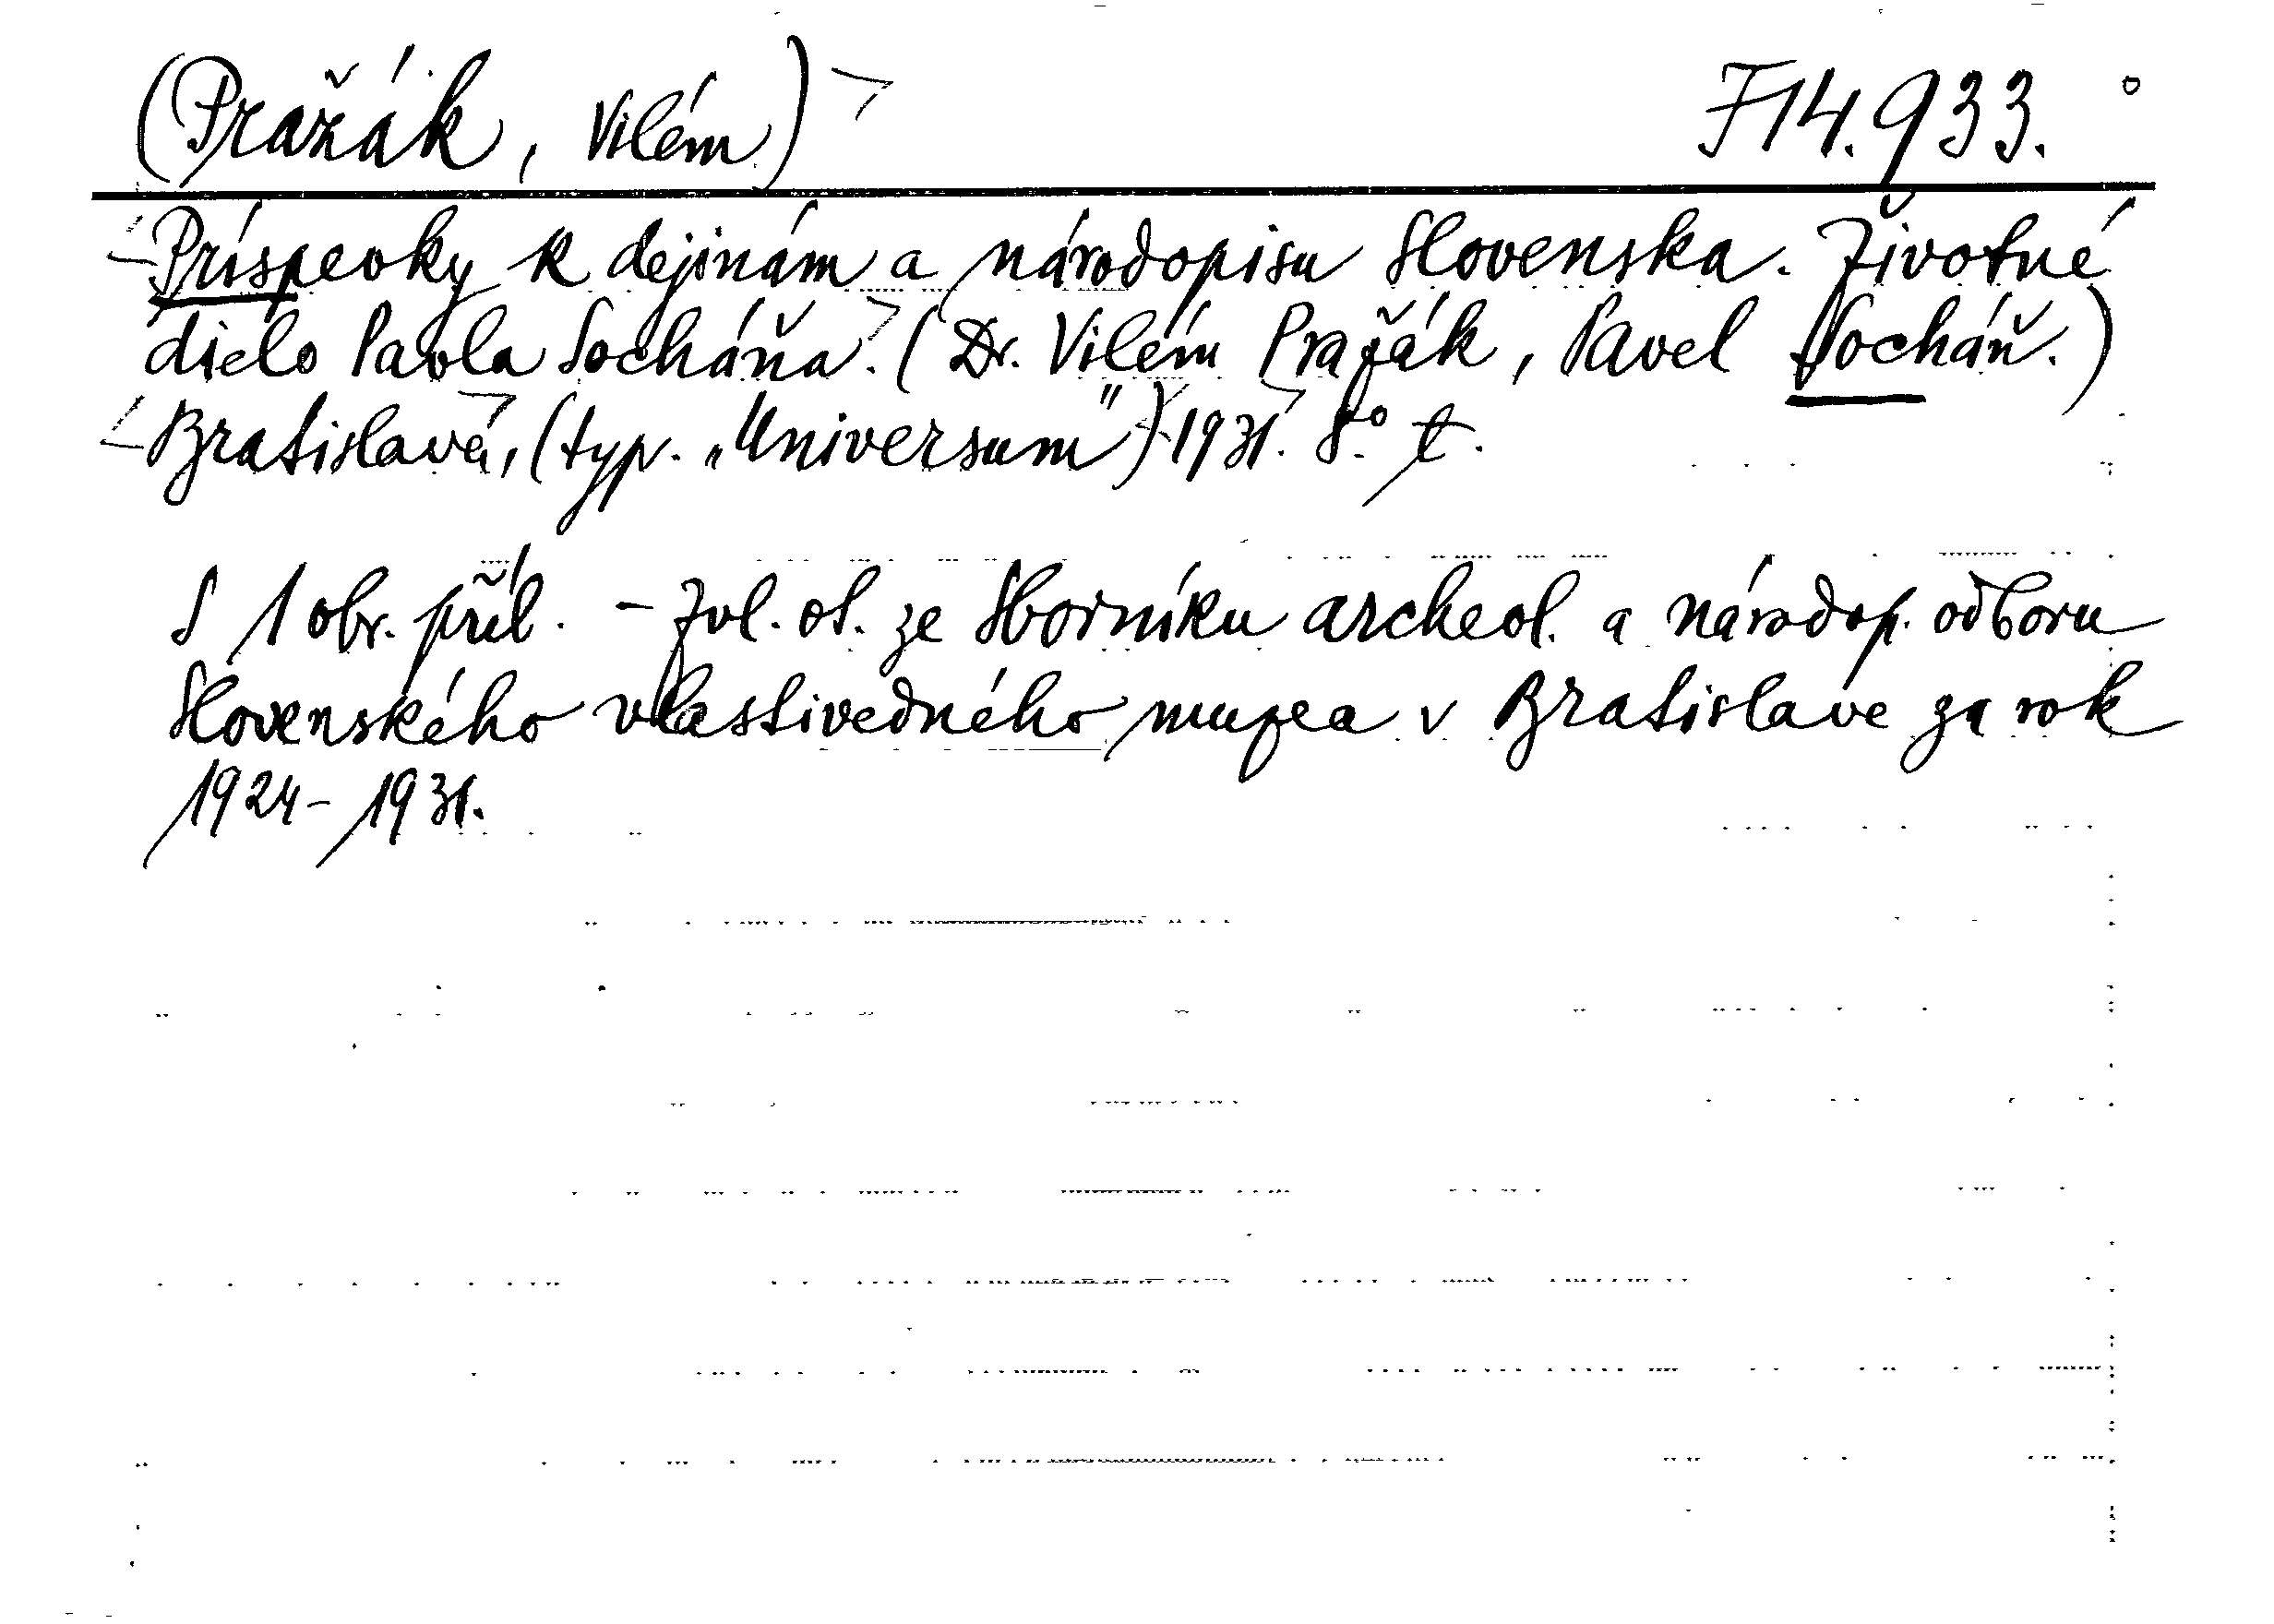 (Pražák, Vilém) F 14.933.
Príspevky k dejinám a národopisu Slovenska. Životné
dielo Pavla Socháňa. (Dr. Vilém Pražák, Pavel Socháň.)
Bratislava, (typ. „Universum") 1931. 8° t.
S 1 obr. příl. - Zvl. ot. ze Sborníku archeol. a národop. odboru
Slovenského vlastivedného muzea v Bratislave za rok
1924 - 1931.